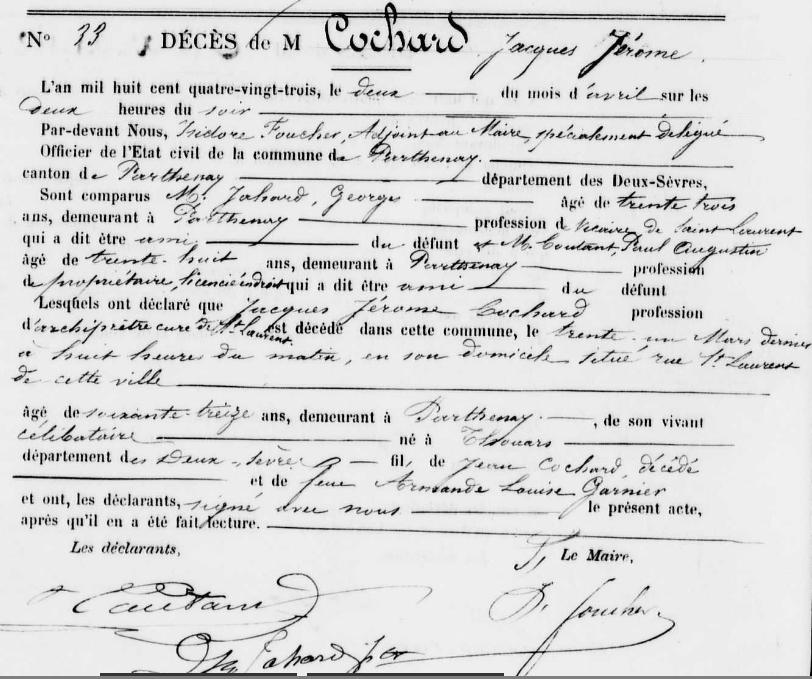 N° 33 DÉCÈS de M Cochard Jacques Jérome.
L'an mil huit cent quatre-vingt-trois, le deux du mois d'avril sur les
deux heures du soir
Par-devant Nous, Isidore Foucher, Adjoint au Maire, spécialement délégué
Officier de l'Etat civil de la commune de Parthenay.
canton de Parthenay département des Deux-Sèvres,
Sont comparus M. Jahard, Georges âgé de trente trois
ans, demeurant à Parthenay profession de vicaire de Saint Laurent
qui a dit être ami du défunt et M. Coutant, Paul Augustin
âgé de trente-huit ans, demeurant à Parthenay profession
de propriétaire, licencié en droit qui a dit être ami du défunt
Lesquels ont déclaré que Jacques Jérome Cochard profession
d'archiprêtre curé de St Laurent, est décédé dans cette commune, le trente-un Mars dernier
à huit heures du matin, en son domicile situé rue St Laurent
de cette ville
âgé de soixante-treize ans, demeurant à Parthenay, de son vivant
célibataire né à Thouars
département des Deux-Sèvres fils de Jean Cochard, décédé
et de feue Armande Louise Garnier
et ont, les déclarants, signé avec nous le présent acte,
après qu'il en a été fait lecture.
Les déclarants, Le Maire,
Coutant I. Foucher